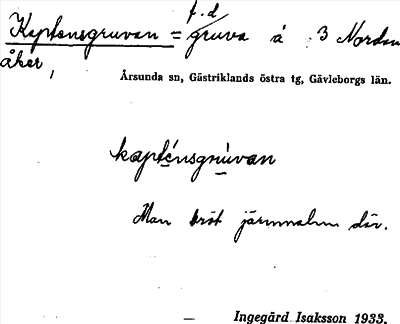 f. d.
Kaptensgruvan = gruva å 3 Nordan
åker,
Årsunda sn, Gästriklands östra tg, Gävleborgs län.
kapténsgrùvan
Man bröt järnmalm där.
— Ingegärd Isaksson 1933.